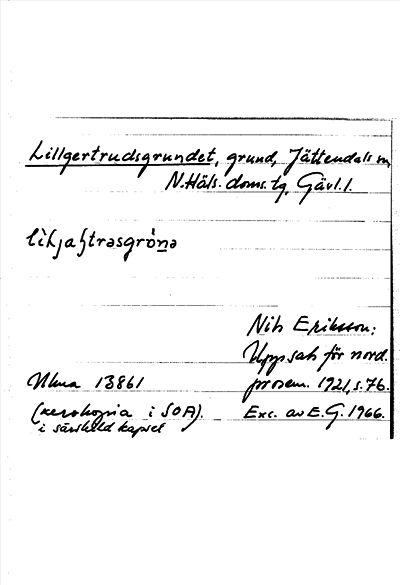 Lillgertrudsgrundet, grund, Jättendals sn,
N.Häls. doms. tg, Gävl. l.
Nils Eriksson:
Upps.ats för nord.
Ulma 13861 prosem. 1921, s. 76.
(xerokopia i SOA). Exc. av E.G. 1966.
i särskild kapsel